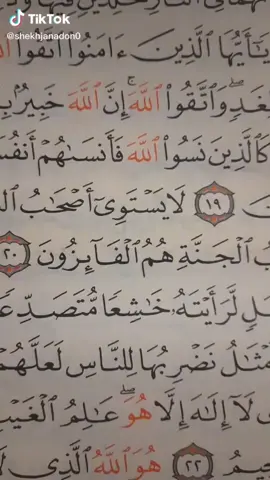 TikTok
@shekhjanadon0
يَٰٓأَيُّهَا ٱلَّذِينَ ءَامَنُوا۟ ٱتَّقُوا۟
وَٱتَّقُوا۟ ٱللَّهَ ۚ إِنَّ ٱللَّهَ خَبِيرٌۢ
كَٱلَّذِينَ نَسُوا۟ ٱللَّهَ فَأَنسَىٰهُمْ
١٩ لَا يَسْتَوِىٓ أَصْحَٰبُ
ٱلْجَنَّةِ هُمُ ٱلْفَآئِزُونَ ٢٠
لَّرَأَيْتَهُۥ خَٰشِعًا مُّتَصَدِّعًا
نَضْرِبُهَا لِلنَّاسِ لَعَلَّهُمْ
لَآ إِلَٰهَ إِلَّا هُوَ ۖ عَٰلِمُ ٱلْغَيْبِ
٢٢ هُوَ ٱللَّهُ ٱلَّذِى